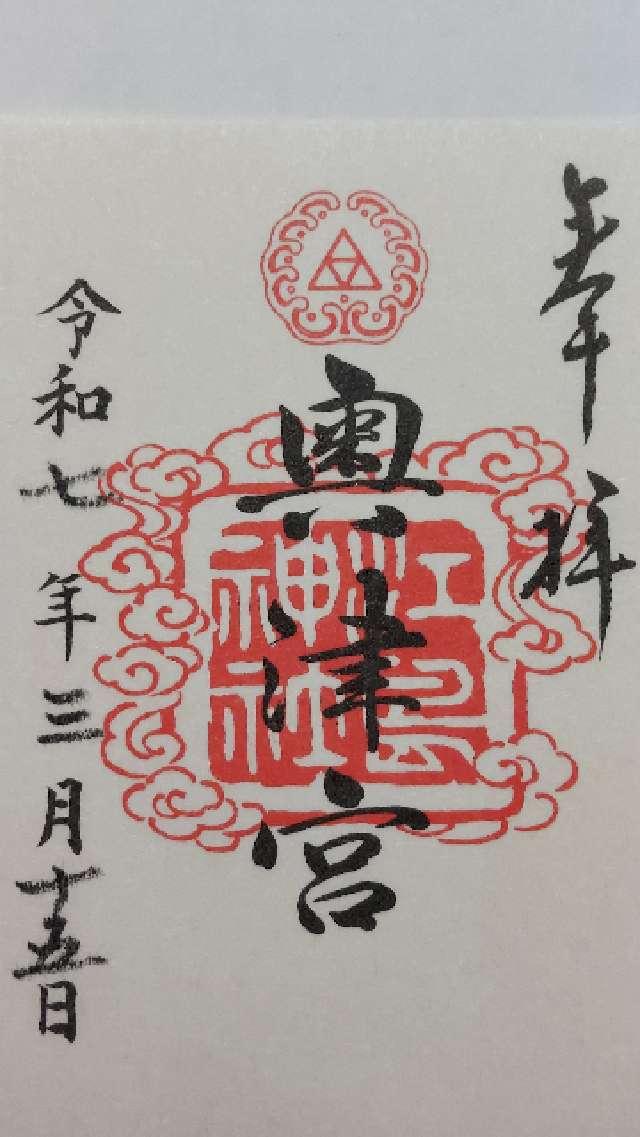 奉拝
奥津宮
江島
神社
令和七年三月十五日